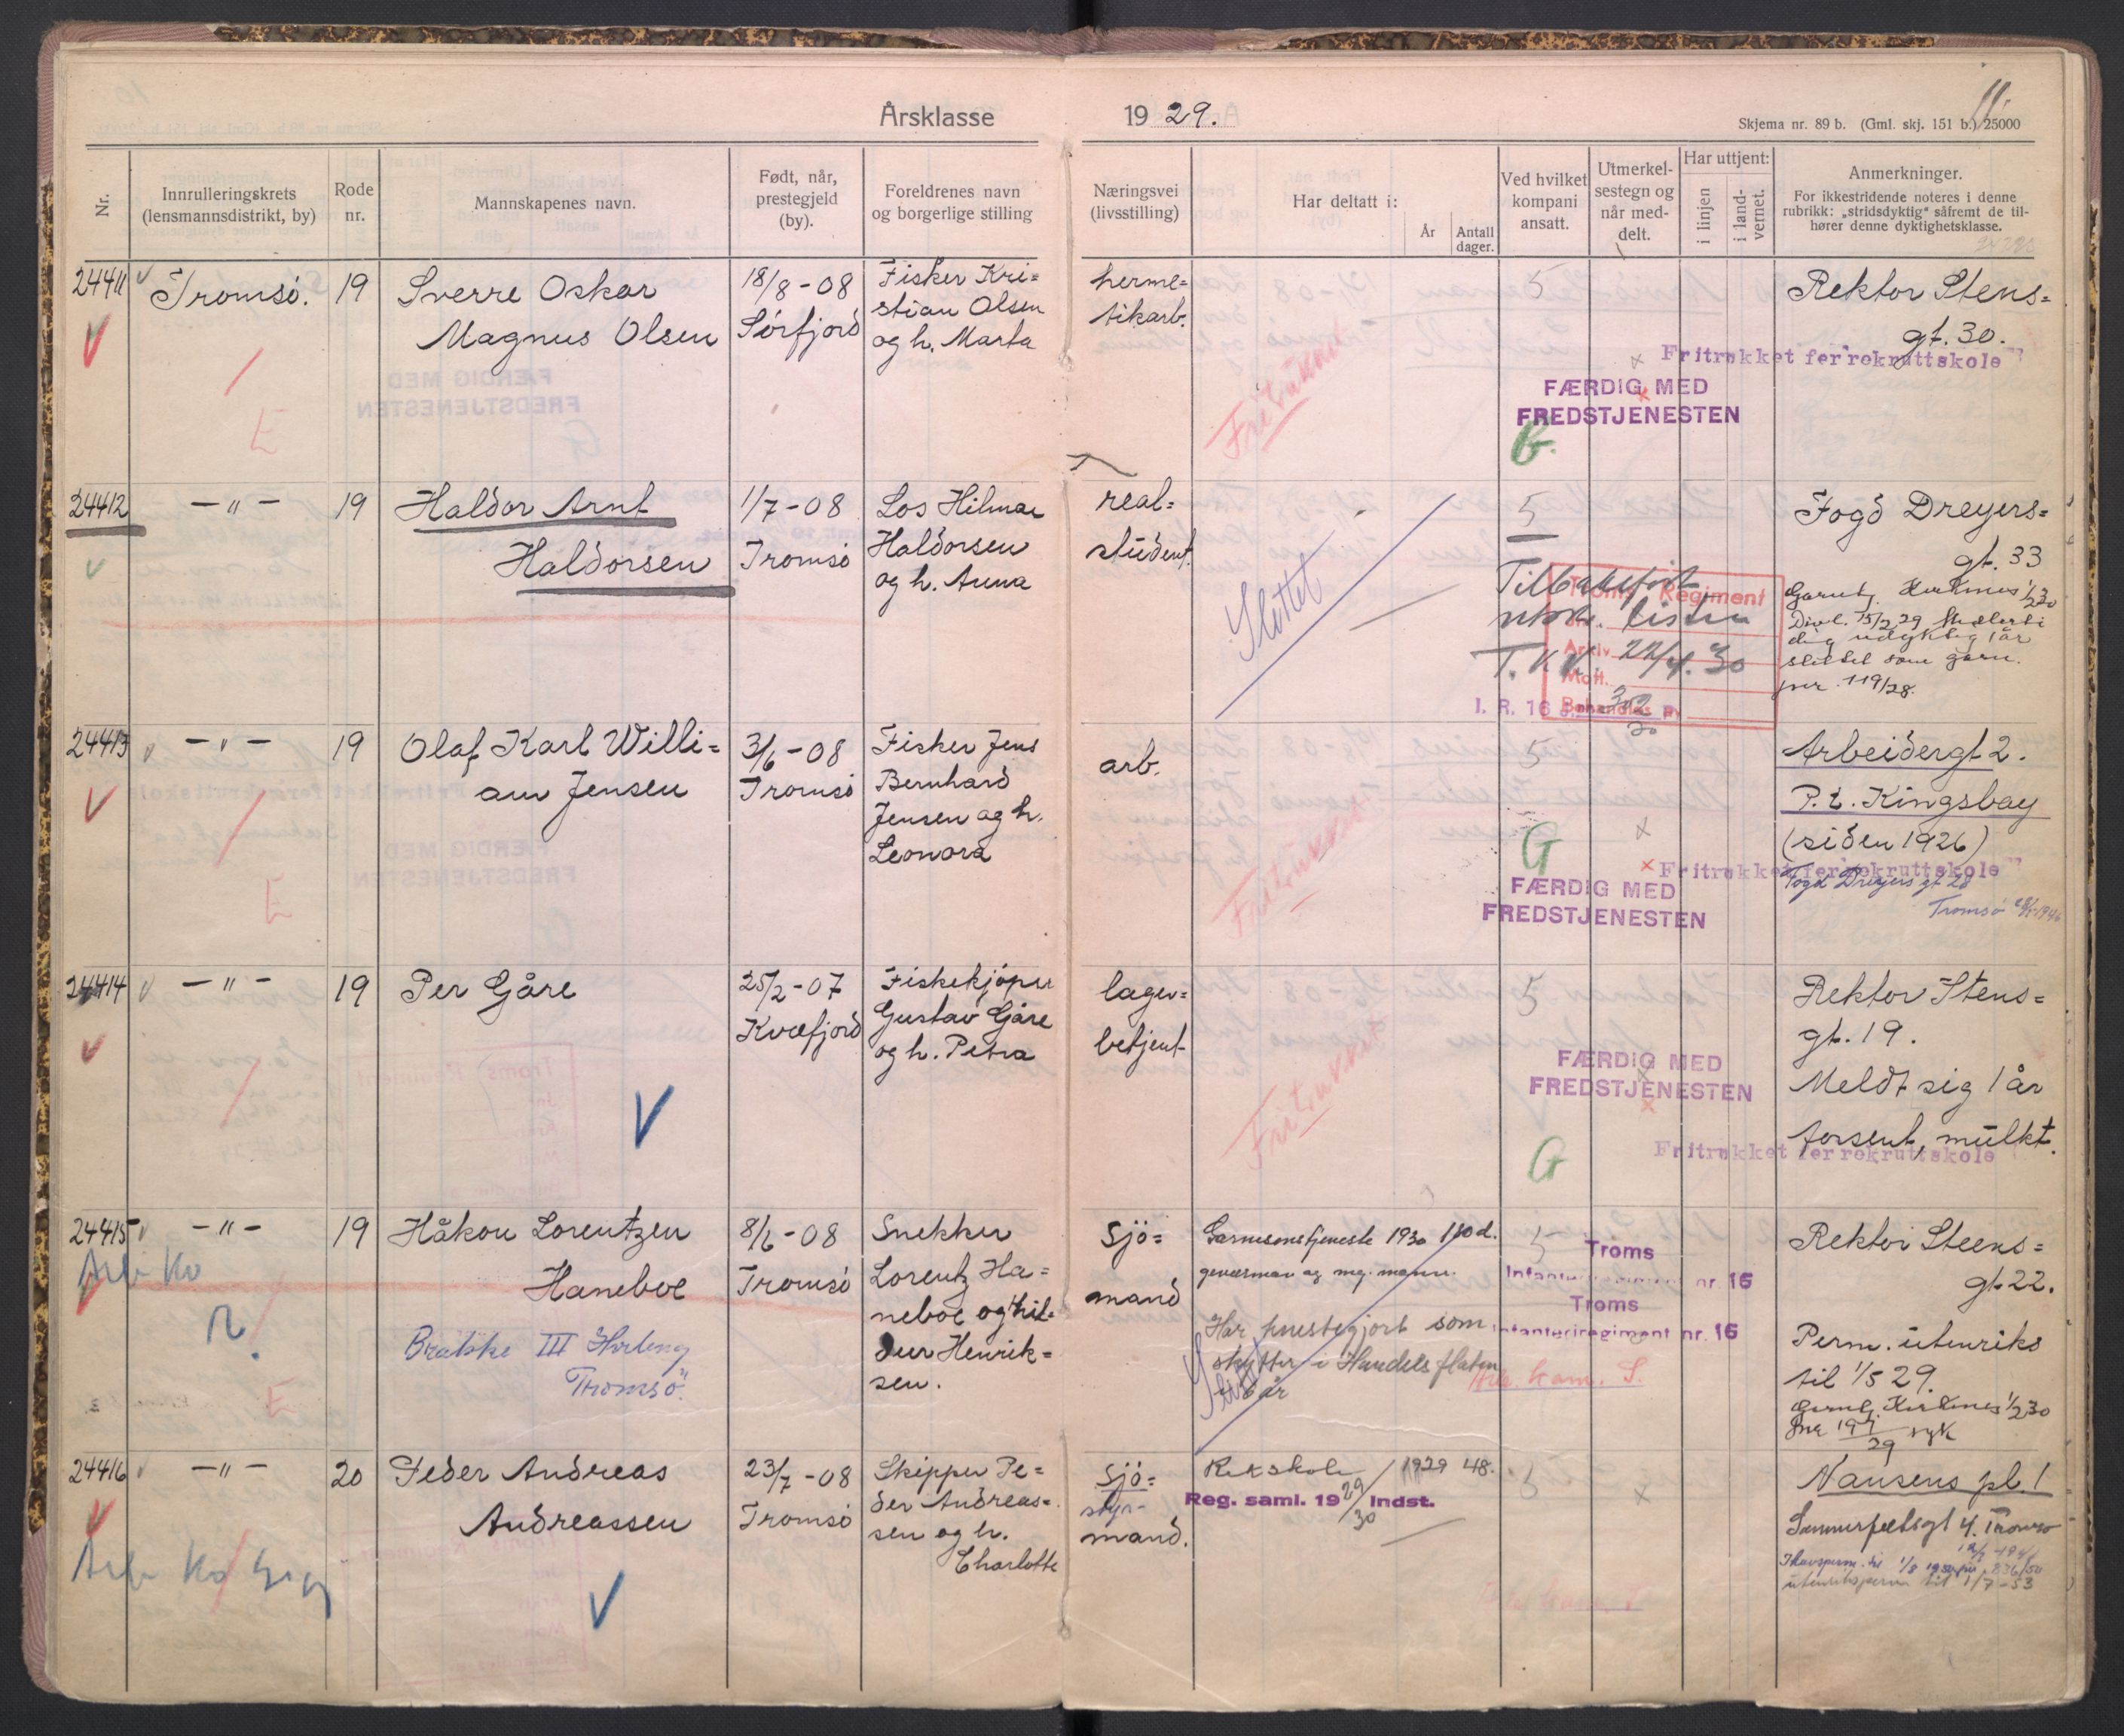 Årsklasse 1929.
11.
Skjema nr. 89 b. (Gml. skj. 151 b.) 25000
Nr.
Innrulleringskrets
(lensmannsdistrikt, by)
Rode
nr.
Mannskapenes navn.
Født, når,
prestegjeld
(by).
Foreldrenes navn
og borgerlige stilling
Næringsvei
(livsstilling)
Har deltatt i:
År
Antall
dager.
Ved hvilket
kompani
ansatt.
Utmerkel-
sestegn og
når med-
delt.
Har uttjent:
i linjen
i land-
vernet.
Anmerkninger.
For ikkestridende noteres i denne
rubrikk: „stridsdyktig" såfremt de til-
hører denne dyktighetsklasse.
24411
Tromsö.
19
Sverre Oskar
Magnus Olsen
18/8-08
Sörfjord
Fisker Kri=
stian Olsen
og h. Marta
herme=
tikarb.
Fritrukket
5
Rektor Stens=
gt. 30.
Fritrukket fer rekruttskole"
FÆRDIG MED
FREDSTJENESTEN
G.
E
24412
-"-
19
Haldor Arnt
Haldorsen
1/7-08
Tromsö
Los Hilmar
Haldorsen
og h. Anna
real=
student.
Slettet
5
Tilbakeført
utskr. listen
T.K.V. 22/4.30
Troms Regiment
Arkiv
Mott.
Behandles av
I. R. 16
302
30
Fogd Dreyers=
gt. 33
Garntj. Kirkenes 1/2 30
Divl. 15/2 29 Midlerti
dig udyktig 1 år
slettet som garn.
jnr. 119/28.
24413
-"-
19
Olaf Karl Willi=
am Jensen
3/6-08
Tromsö
Fisker Jens
Bernhard
Jensen og h.
Leonora
arb.
Fritrukket
5
G
FÆRDIG MED
FREDSTJENESTEN
Arbeidergt 2.
P.t. Kingsbay
(siden 1926)
Fritrukket fer rekruttskole"
Fogd Dreyers gt 28
Tromsö
E
24414
-"-
19
Per Gåre
25/2-07
Kvæfjord
Fiskekjöper
Gustav Gåre
og h. Petra
lager=
betjent
Fritrukket
5
FÆRDIG MED
FREDSTJENESTEN
G
Rektor Stens=
gt. 19.
Meldt sig 1 år
forsent, mulkt.
Fritrukket fer rekruttskole
24415
-"-
19
Håkon Lorentzen
Haneboe
8/6-08
Tromsö
Snekker
Lorentz Ha=
neboe og hil=
dur Henrik=
sen.
Sjö=
mand
Garnisonstjeneste 1930 180 d.
geværman og mg. mann.
Har tjenestegjort som
skytter i Handelsflaten
år
Slettet
5
Troms
Infanteriregiment nr. 16
Troms
Infanteriregiment nr. 16
Rektor Steens=
gt. 22.
Perm. utenriks
til 1/5 29.
Garntj. Kirkenes 1/2 30
syk
Arb Ko
Brakke III
Tromsö.
E
24416
-"-
20
Peder Andreas
Andreassen
23/7-08
Tromsö
Skipper Pe=
der Andreas=
sen og h.
Charlotte
Sjö=
styr-
mand.
Rekskole 1929 48.
Reg. saml. 1929/30 Indst.
5
Nansens pl. 1
Sommerfeltsgt 4. Tromsö
utenriksperm til 1/7-53
Arb Ko